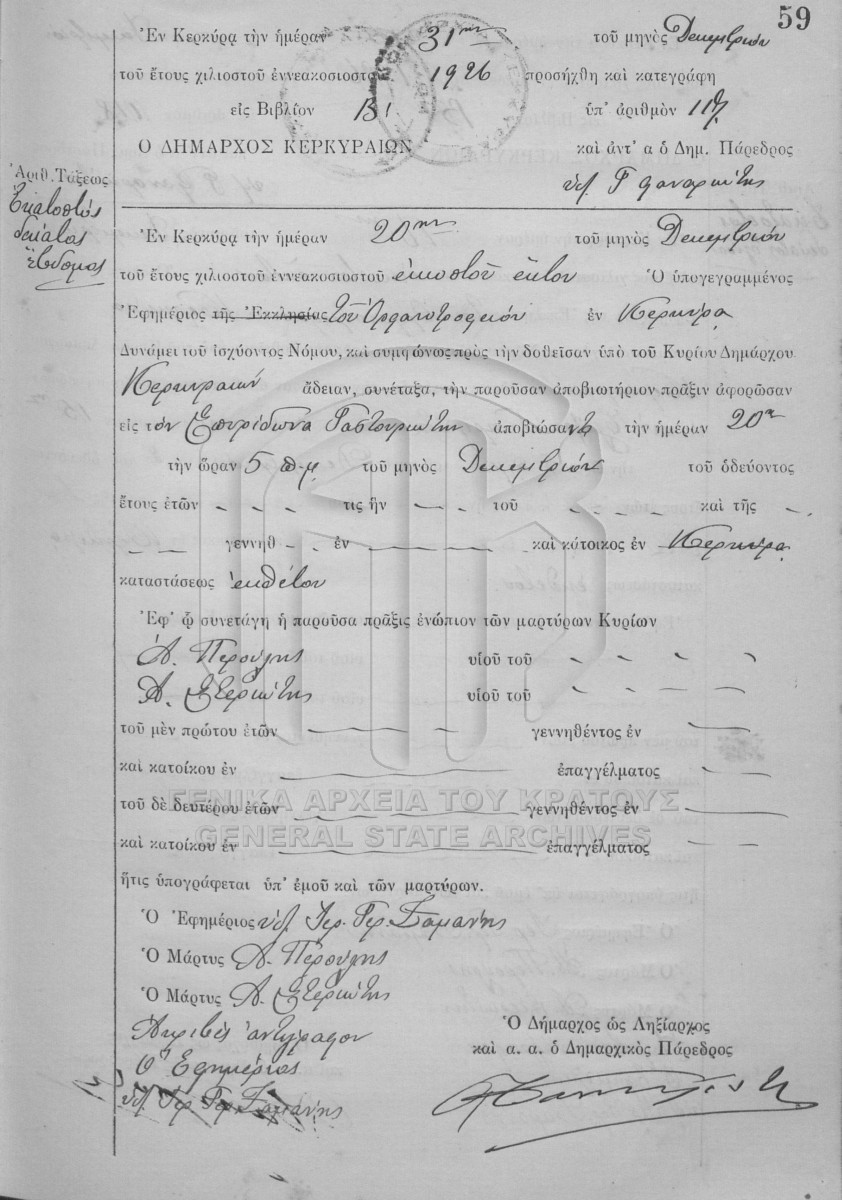 59
Ἐν Κερκύρᾳ τὴν ἡμέραν 31ην τοῦ μηνὸς Δεκεμβρίου
τοῦ ἔτους χιλιοστοῦ ἐννεακοσιοστοῦ 1926 προσήχθη καὶ κατεγράφη
εἰς Βιβλίον Β' ὑπ' ἀριθμὸν 117
Ὁ ΔΗΜΑΡΧΟΣ ΚΕΡΚΥΡΑΙΩΝ καὶ ἀντ' α ὁ Δημ. Πάρεδρος
Ἀριθ. Τάξεως
Ἑκατοστός
δέκατος
ἕβδομος
Ἐν Κερκύρᾳ τὴν ἡμέραν 20ην τοῦ μηνὸς Δεκεμβρίου
τοῦ ἔτους χιλιοστοῦ ἐννεακοσιοστοῦ εἰκοστοῦ ἕκτου Ὁ ὑπογεγραμμένος
Ἐφημέριος τῆς Ἐκκλησίας τοῦ Ὀρφανοτροφείου ἐν Κερκύρᾳ
Δυνάμει τοῦ ἰσχύοντος Νόμου, καὶ συμφώνως πρὸς τὴν δοθεῖσαν ὑπὸ τοῦ Κυρίου Δημάρχου
Κερκυραίων ἄδειαν, συνέταξα, τὴν παροῦσαν ἀποβιωτήριον πρᾶξιν ἀφορῶσαν
εἰς τὸν Σπυρίδωνα Γαστουριώτην ἀποβιώσαντα τὴν ἡμέραν 20ην
τὴν ὥραν 5 π.μ. τοῦ μηνὸς Δεκεμβρίου τοῦ ὁδεύοντος
ἔτους ἐτῶν τις ἣν τοῦ καὶ τῆς
γεννηθ ἐν καὶ κάτοικος ἐν Κερκύρᾳ
καταστάσεως ἐκθέτου
Ἐφ' ᾧ συνετάγη ἡ παροῦσα πρᾶξις ἐνώπιον τῶν μαρτύρων Κυρίων
Α. Περούλης υἱοῦ τοῦ
Α. υἱοῦ τοῦ
τοῦ μὲν πρώτου ἐτῶν γεννηθέντος ἐν
καὶ κατοίκου ἐν ἐπαγγέλματος
ΓΕΝΙΚΑ ΑΡΧΕΙΑ ΤΟΥ ΚΡΑΤΟΥΣ
τοῦ δὲ δευτέρου ἐτῶν γεννηθέντος ἐν
GENERAL STATE ARCHIVES
καὶ κατοίκου ἐν ἐπαγγέλματος
ἥτις ὑπογράφεται ὑπ' ἐμοῦ καὶ τῶν μαρτύρων.
Ὁ Ἐφημέριος ὑπ. Ἱερ. Γερ. Σαμάνης
Ὁ Μάρτυς Α. Περούλης
Ὁ Μάρτυς Α.
Ἀκριβὲς ἀντίγραφον
Ὁ Ἐφημέριος
ὑπ. Ἱερ. Γερ. Σαμάνης
Ὁ Δήμαρχος ὡς Ληξίαρχος
καὶ α. α. ὁ Δημαρχικὸς Πάρεδρος